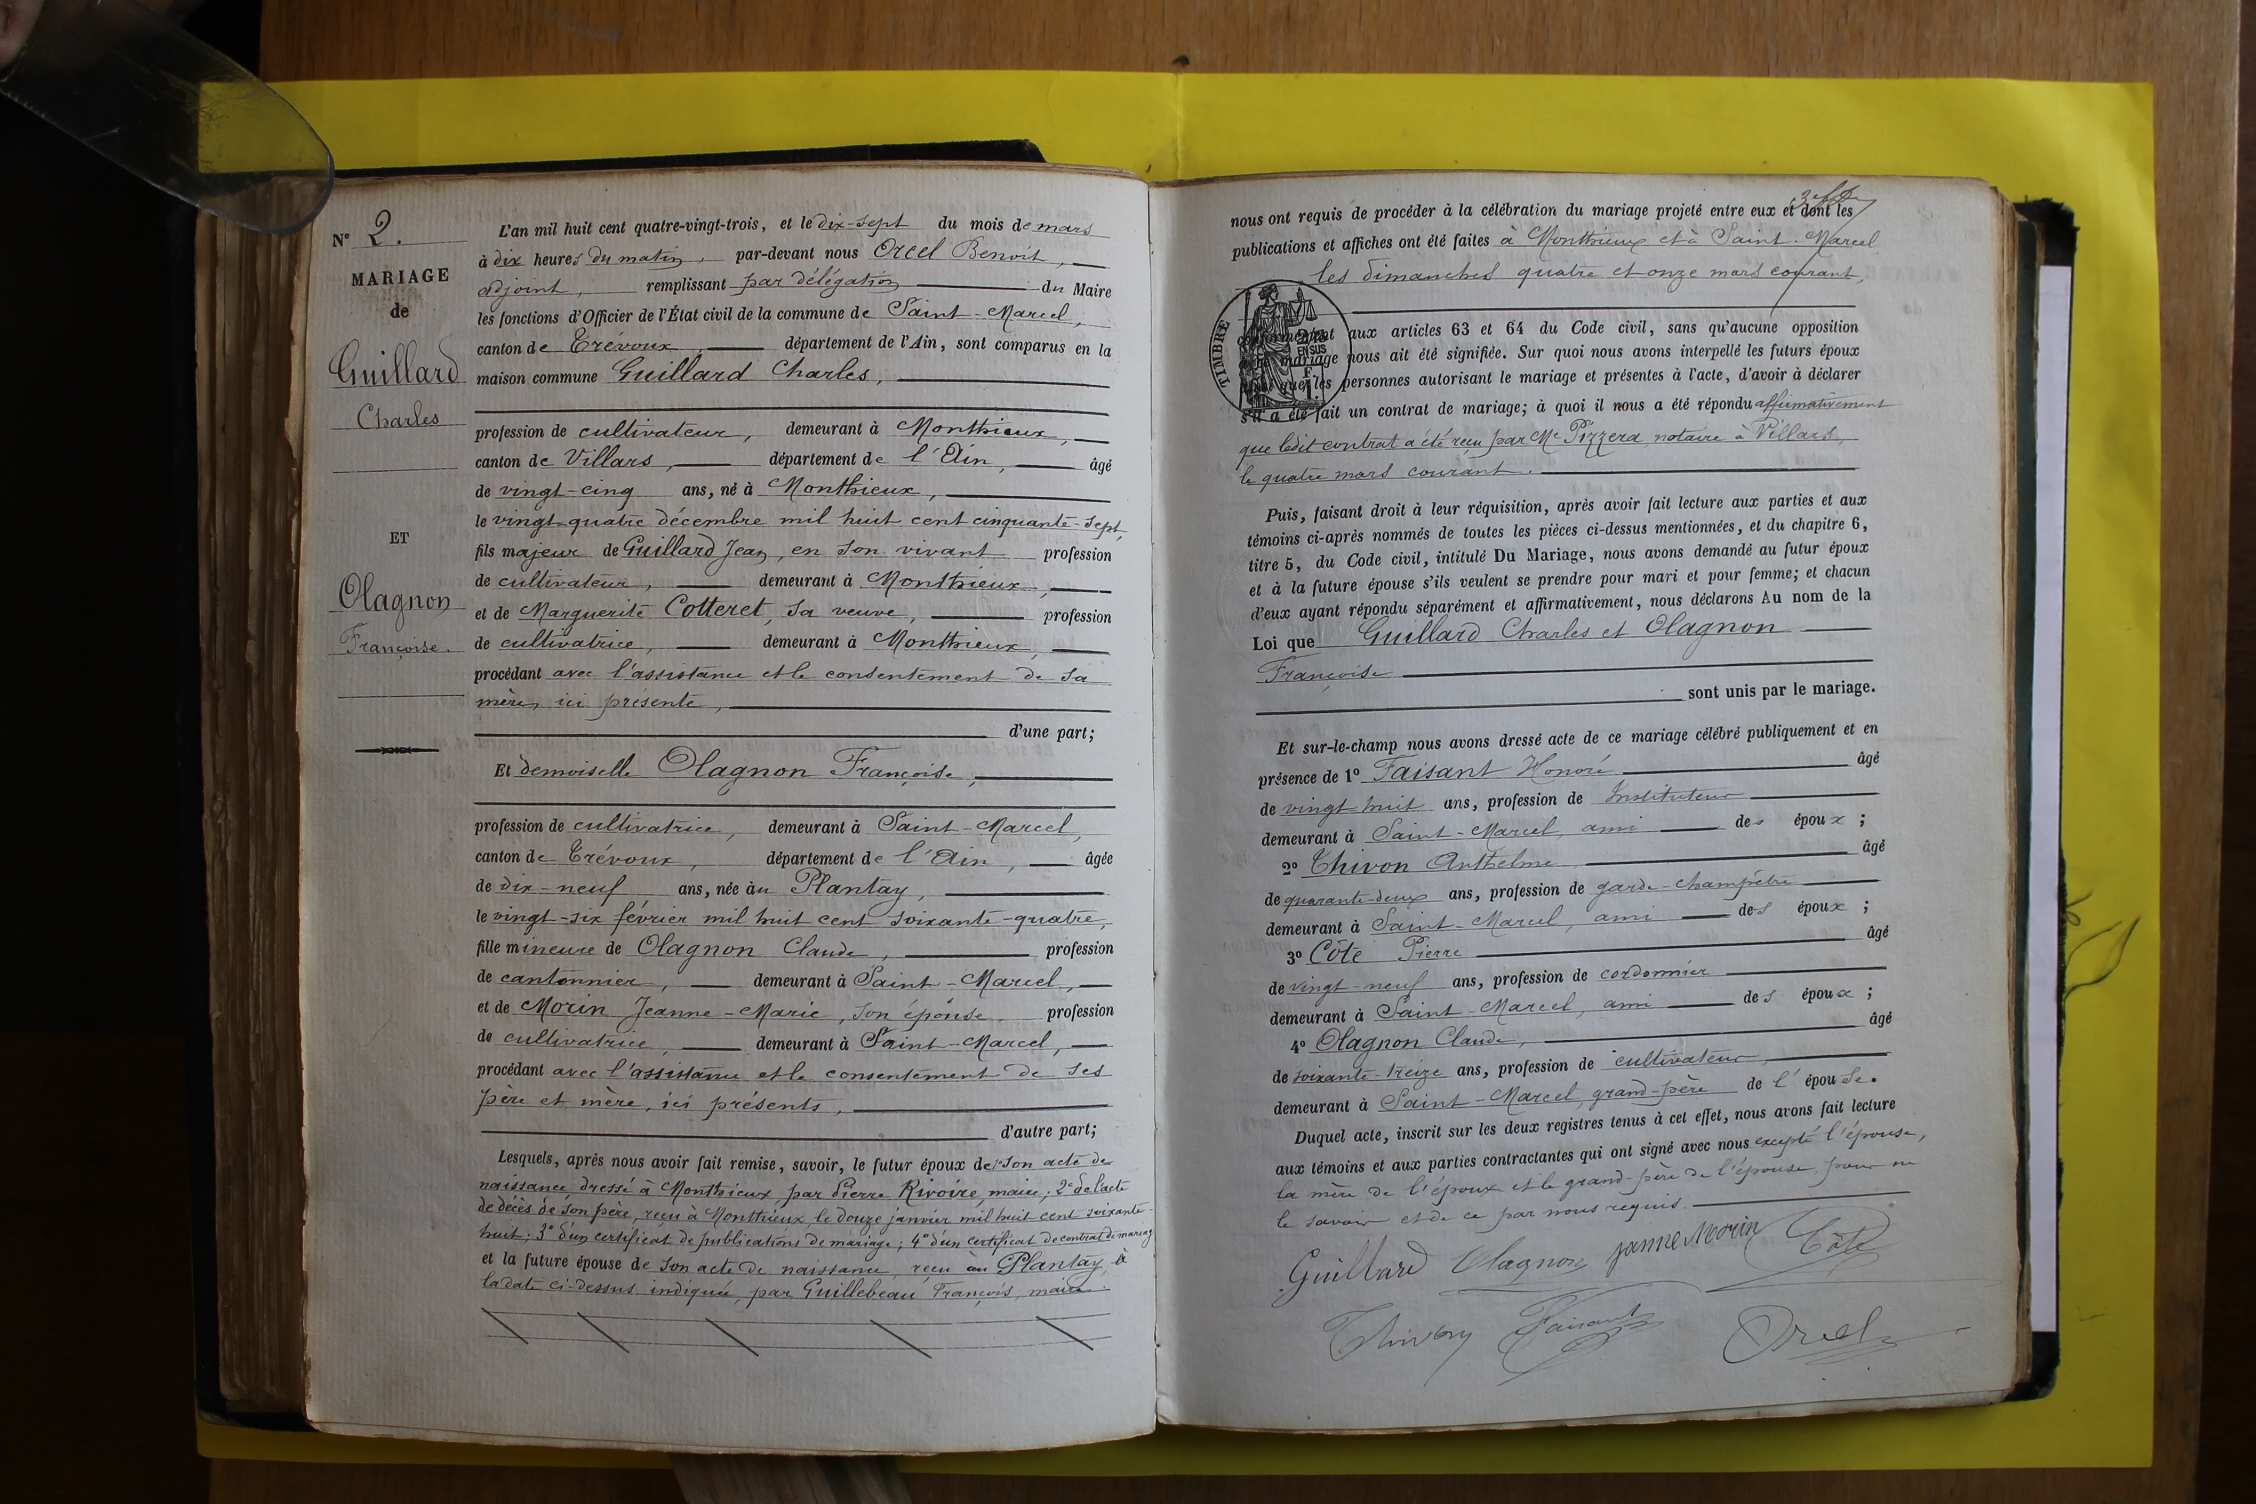 Nº 2.
MARIAGE
de
Guillard
Charles
ET
Olagnon
Françoise.
L'an mil huit cent quatre-vingt-trois, et le dix-sept du mois de mars
à dix heures du matin, par-devant nous Orcel Benoit,
adjoint, remplissant par délégation du Maire
les fonctions d'Officier de l'État civil de la commune de Saint-Marcel,
canton de Trévoux, département de l'Ain, sont comparus en la
maison commune Guillard Charles,
profession de cultivateur, demeurant à Monthieux,
canton de Villars, département de l'Ain, âgé
de vingt-cinq ans, né à Monthieux,
le vingt-quatre décembre mil huit cent cinquante-sept,
fils majeur de Guillard Jean, en son vivant profession
de cultivateur, demeurant à Monthieux,
et de Marguerite Cotteret, sa veuve, profession
de cultivatrice, demeurant à Monthieux,
procédant avec l'assistance et le consentement de sa
mère, ici présente,
d'une part;
Et demoiselle Olagnon Françoise,
profession de cultivatrice, demeurant à Saint-Marcel,
canton de Trévoux, département de l'Ain, âgée
de dix-neuf ans, née àu Plantay,
le vingt-six février mil huit cent soixante-quatre,
fille mineure de Olagnon Claude, profession
de cantonnier, demeurant à Saint-Marcel,
et de Morin Jeanne-Marie, son épouse profession
de cultivatrice, demeurant à Saint-Marcel,
procédant avec l'assistance et le consentement de ses
père et mère, ici présents,
d'autre part;
Lesquels, après nous avoir fait remise, savoir, le futur époux de 1º son acte de
naissance dressé à Monthieux par Pierre Rivoire, maire; 2º de l'acte
de décès de son père, reçu à Monthieux le douze janvier mil huit cent soixante-
huit; 3º d'un certificat de publications de mariage; 4º d'un certificat de contrat de mariage
et la future épouse de son acte de naissance, reçu au Plantay, à
la date ci-dessus indiquée, par Guillebeau François, maire.
nous ont requis de procéder à la célébration du mariage projeté entre eux et dont les
publications et affiches ont été faites à Monthieux et à Saint-Marcel
les dimanches quatre et onze mars courant,
TIMBRE
2/10
EN SUS
F.
1.
conformément aux articles 63 et 64 du Code civil, sans qu'aucune opposition
mariage nous ait été signifiée. Sur quoi nous avons interpellé les futurs époux
que les personnes autorisant le mariage et présentes à l'acte, d'avoir à déclarer
s'il a été fait un contrat de mariage; à quoi il nous a été répondu affirmativement
que ledit contrat a été reçu par Me Pizzera notaire à Villars,
le quatre mars courant.
Puis, faisant droit à leur réquisition, après avoir fait lecture aux parties et aux
témoins ci-après nommés de toutes les pièces ci-dessus mentionnées, et du chapitre 6,
titre 5, du Code civil, intitulé Du Mariage, nous avons demandé au futur époux
et à la future épouse s'ils veulent se prendre pour mari et pour femme; et chacun
d'eux ayant répondu séparément et affirmativement, nous déclarons Au nom de la
Loi que Guillard Charles et Olagnon
Françoise
sont unis par le mariage.
Et sur-le-champ nous avons dressé acte de ce mariage célébré publiquement et en
présence de 1º Faisant Honoré âgé
de vingt huit ans, profession de Instituteur
demeurant à Saint-Marcel, ami des époux;
2º Thivon Anthelme âgé
de quarante-deux ans, profession de garde-champêtre
demeurant à Saint-Marcel, ami des époux;
3º Côte Pierre âgé
de vingt-neuf ans, profession de cordonnier
demeurant à Saint-Marcel, ami des époux;
4º Olagnon Claude, âgé
de soixante-treize ans, profession de cultivateur,
demeurant à Saint-Marcel, grand-père de l'épouse.
Duquel acte, inscrit sur les deux registres tenus à cet effet, nous avons fait lecture
aux témoins et aux parties contractantes qui ont signé avec nous excepté l'épouse,
la mère de l'époux et le grand-père de l'épouse, pour ne
le savoir et de ce par nous requis.
Guillard Olagnon janne Morin Côte
Thivon Faisant Orcel